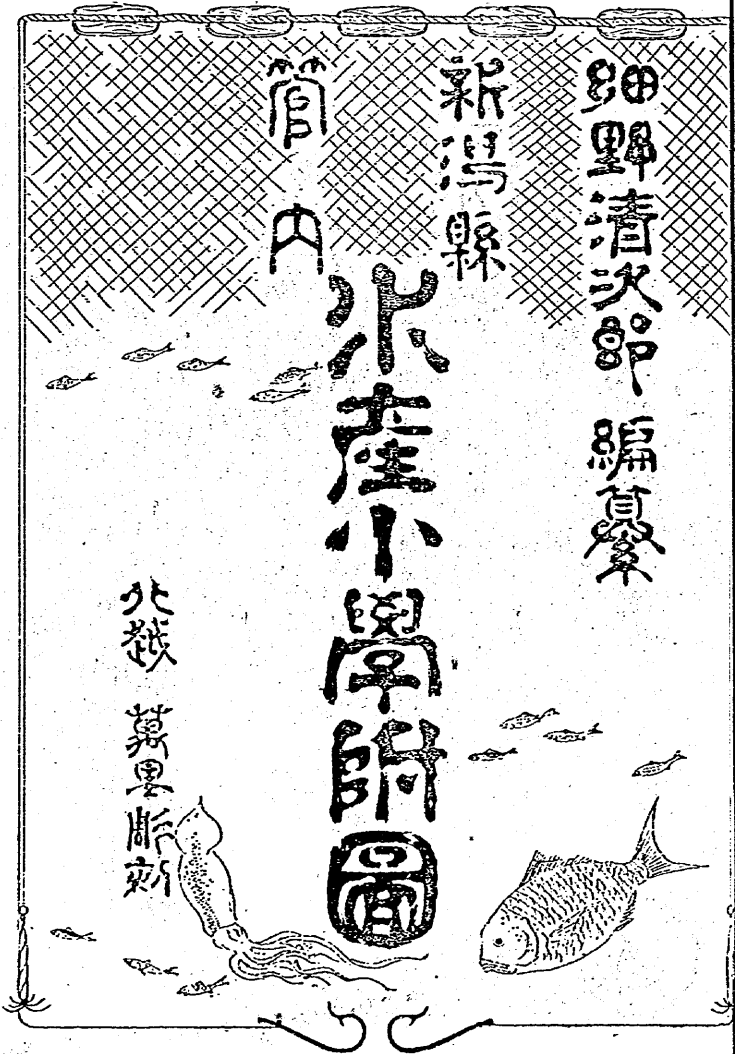 細野清次郎 編纂
新潟縣
管内
水産小學附圖
北越 彫刻